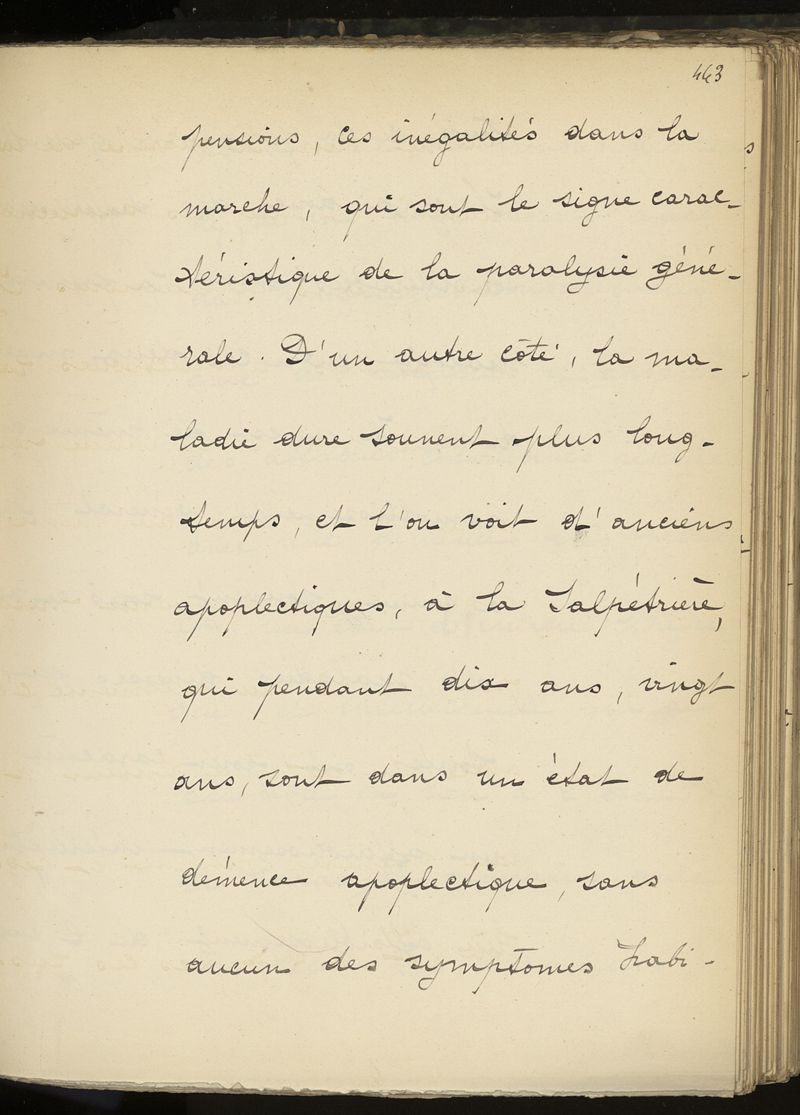 443
pensions, ces inégalités dans la
marche, qui sont le signe carac-
téristique de la paralysie géné-
rale. D'un autre côté, la ma-
ladie dure souvent plus long-
temps, et l'on voit d'anciens
apoplectiques, à la Salpêtrière,
qui pendant dix ans, vingt
ans, sont dans un état de
démence apoplectique, sans
aucun des symptomes habi-